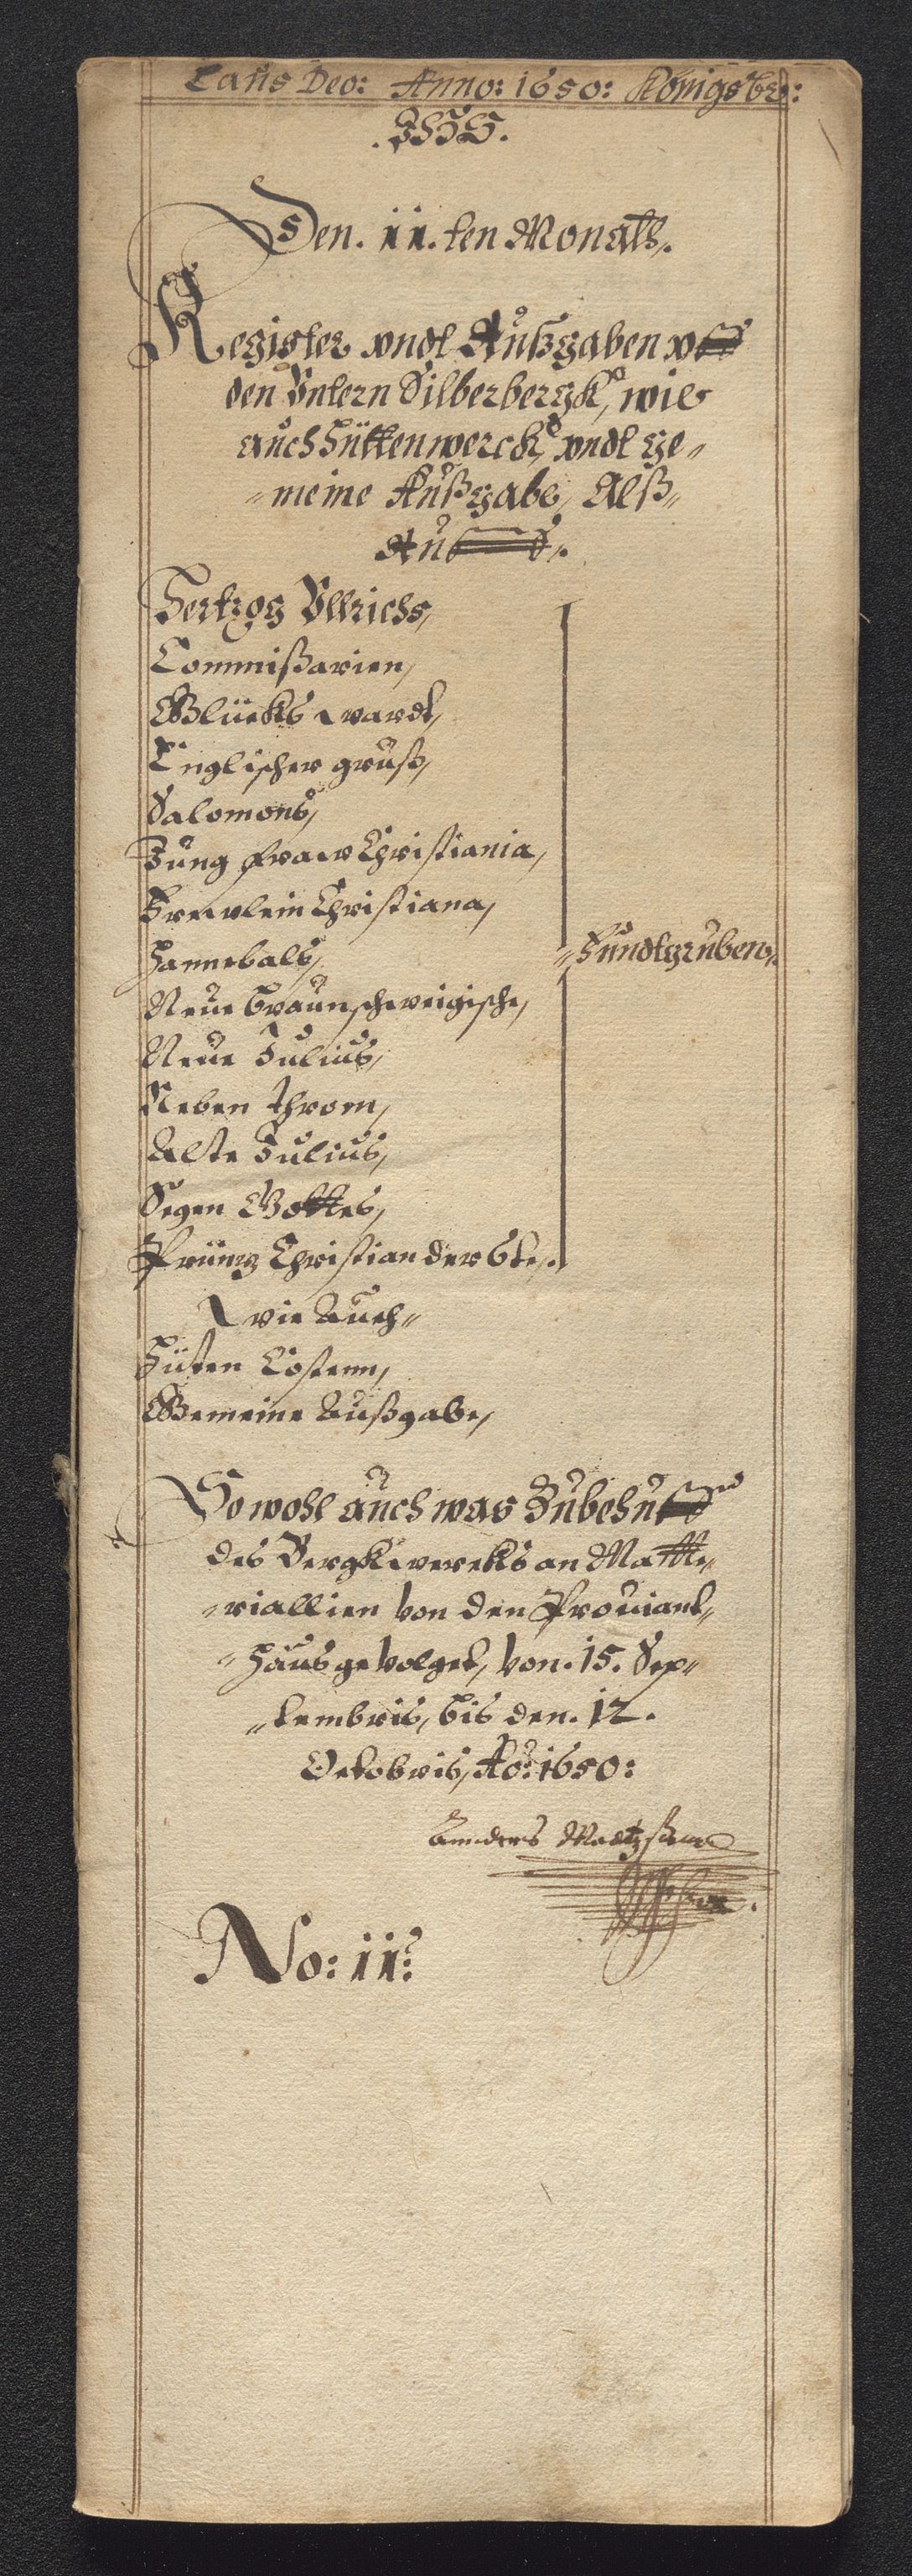 Laus Deo: Anno: 1650: Königsbr:
Den. 11. ten Monats.
Register vndt Außgaben vff
den Vntern Silberbergk, wie
auch Hüttenwerck, vndt ge„
„meine Außgabe, Alß„
Auff.
Hertzog Vllrichs,
Commißarien,
Glücks wardt,
Englischer gruß,
Salomons,
Jung fraw Christiania,
Frewlein Christiana,
Hannebals,
„Fundtgruben„
Neue braunschweigische,
Neue Julius,
Neben throm,
Alte Julius,
Segen Gottes,
Printz Christian der 6te.
wie Auch„
Hüten Costenn,
Gemeine Außgabe,
So wohl auch was Zubehuff
des Bergkwercks an Matte„
„riallien von den Prouiant„
„haus gevolget, von. 15. Sep„
„tembris, bis den. 12.
Octobris, Ao: 1650:
Anders
No: 11: